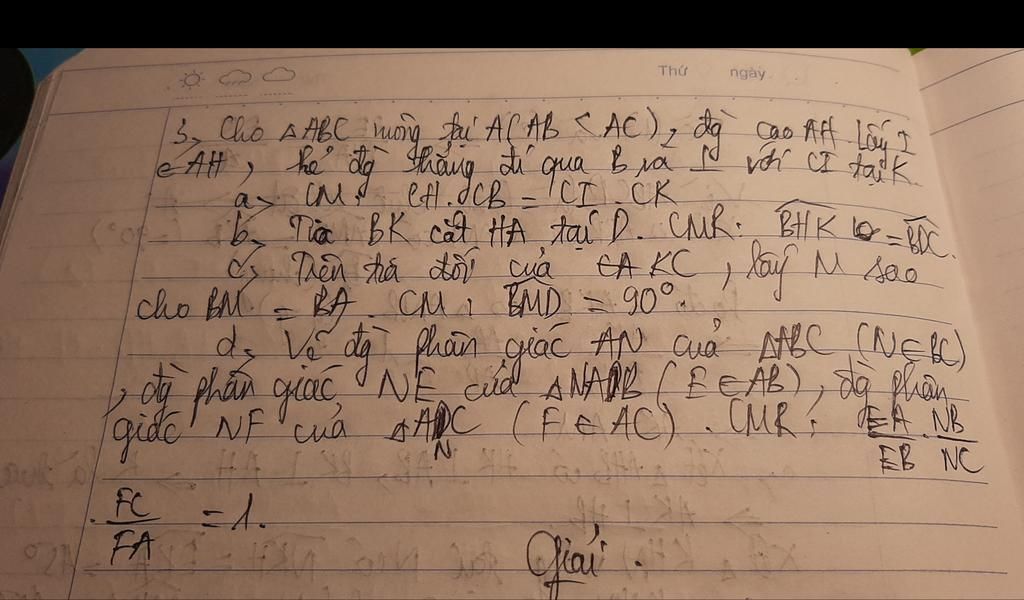 Thứ ngày
3, Cho △ABC vuông tại A(AB < AC), đg cao AH. Lấy I
∈AH, kẻ đg thẳng đi qua B và ⊥ với CI tại K.
a, CM: CH.CB = CI.CK
b, Tia BK cắt HA tại D. CMR: BHK = BDC.
c, Trên tia đối của tia KC, lấy M sao
cho BM = BA. CM: BMD = 90°.
d, Vẽ đg phân giác AN của △ABC (N∈BC)
, đg phân giác NE của △NAB (E∈AB), đg phân
giác NF của △ANC (F∈AC). CMR: EA/EB . NB/NC
. FC/FA = 1.
Giải.